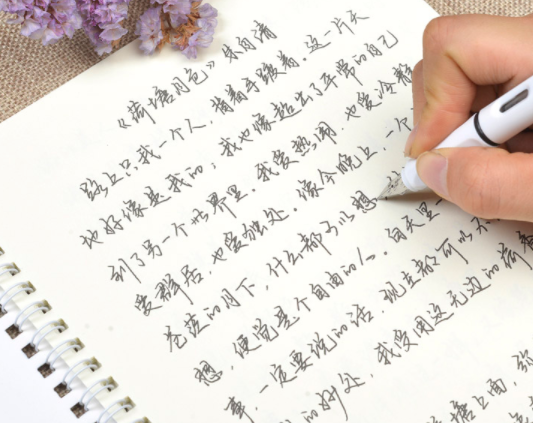 《荷塘月色》朱自清
路上只我一个人，背着手踱着。这一片天
地好像是我的；我也像超出了平常的自己
到了另一个世界里。我爱热闹，也爱冷静
爱群居，也爱独处。像今晚上，一个
苍茫的月下，什么都可以想
想，便觉是个自由的人。白天里一
事，一定要说的话，现在都可以不
的妙处，我受用这无边的荷香
塘上面，弥